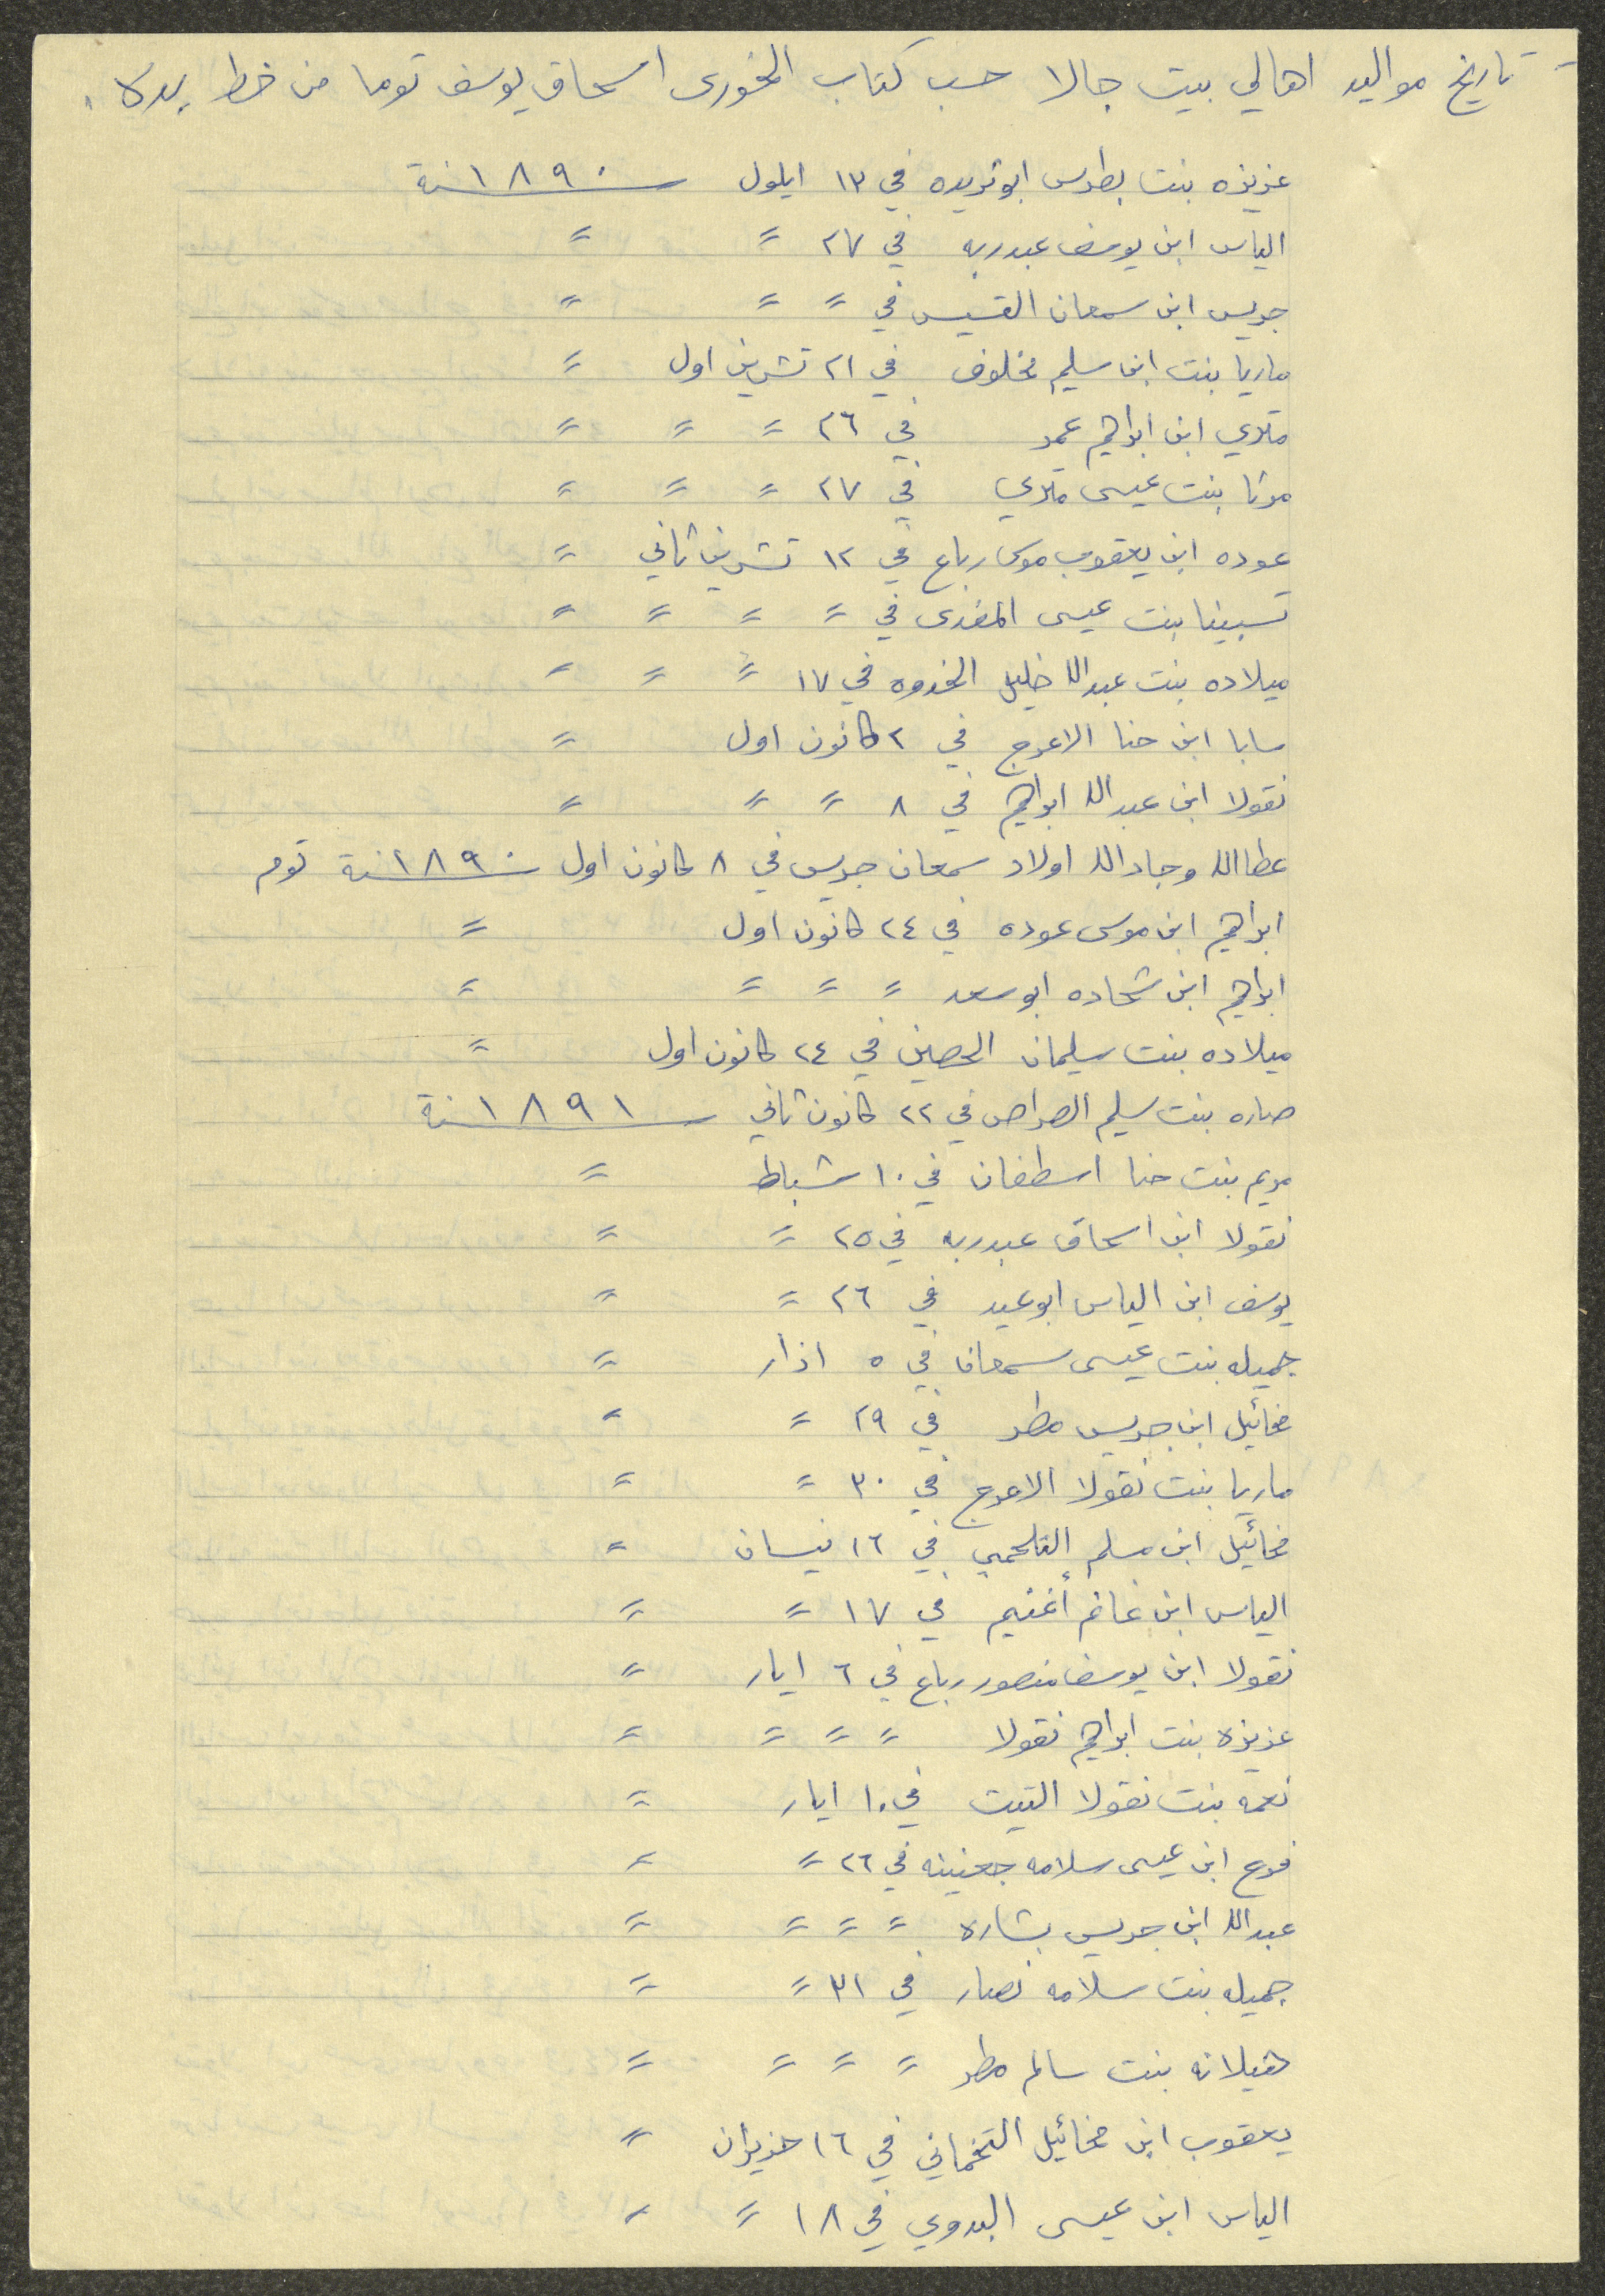 تاريخ مواليد اهالي بيت جالا حسب كتاب الخورى اسحاق يوسف توما من خط يدكا.
عزيزه بنت بطرس ابو تريده في ١٣ ايلول سنة ١٨٩٠
الياس ابن يوسف عبدربه في ٢٧ = =
جريس ابن سمعان القسيس في = = =
ماريا بنت ابن سليم مخلوف في ٢١ تشرين اول =
متري ابن ابراهيم عمر في ٢٦ = = =
مرتا بنت عيسى متري في ٢٧ = = =
عوده ابن يعقوب موسى رباع في ١٢ تشرين ثاني =
تسبينا بنت عيسى المغدى في = = = =
ميلاده بنت عبدالله خليل الخدوه في ١٧ = = =
سابا ابن حنا الاعرج في ٢ كانون اول =
نقولا ابن عبدالله ابراهيم في ٨ = = =
عطاالله وجادالله اولاد سمعان جريس في ٨ كانون اول سنة ١٨٩٠ توم
ابراهيم ابن موسى عوده في ٢٤ كانون اول =
ابراهيم ابن شحاده ابو سعد = = = =
ميلاده بنت سليمان الحصين في ٢٤ كانون اول =
صاره بنت سليم الصراص في ٢٢ كانون ثاني سنة ١٨٩١
مريم بنت حنا اسطفان في ١٠ شباط =
نقولا ابن اسحاق عبدربه في ٢٥ = =
يوسف ابن الياس ابو عيد في ٢٦ = =
جميله بنت عيسى سمعان في ٥ اذار =
مخائيل ابن جريس مطر في ٢٩ = =
ماريا بنت نقولا الاعرج في ٣٠ = =
مخائيل ابن مسلم التلحمي في ١٦ نيسان =
الياس ابن غانم أغنيم في ١٧ = =
نقولا ابن يوسف منصور رباع في ٦ ايار =
عزيزه بنت ابراهيم نقولا = = = =
نعمه بنت نقولا التيت في ١٠ ايار =
فرح ابن عيسى سلامه جعنينه في ٢٦ = =
عبدالله ابن جريس بشاره = = = =
جميله بنت سلامه نصار في ٣١ = =
هيلانه بنت سالم مطر = = = =
يعقوب ابن مخائيل التخماني في ١٦ حزيران =
الياس ابن عيسى البدوي في ١٨ = =